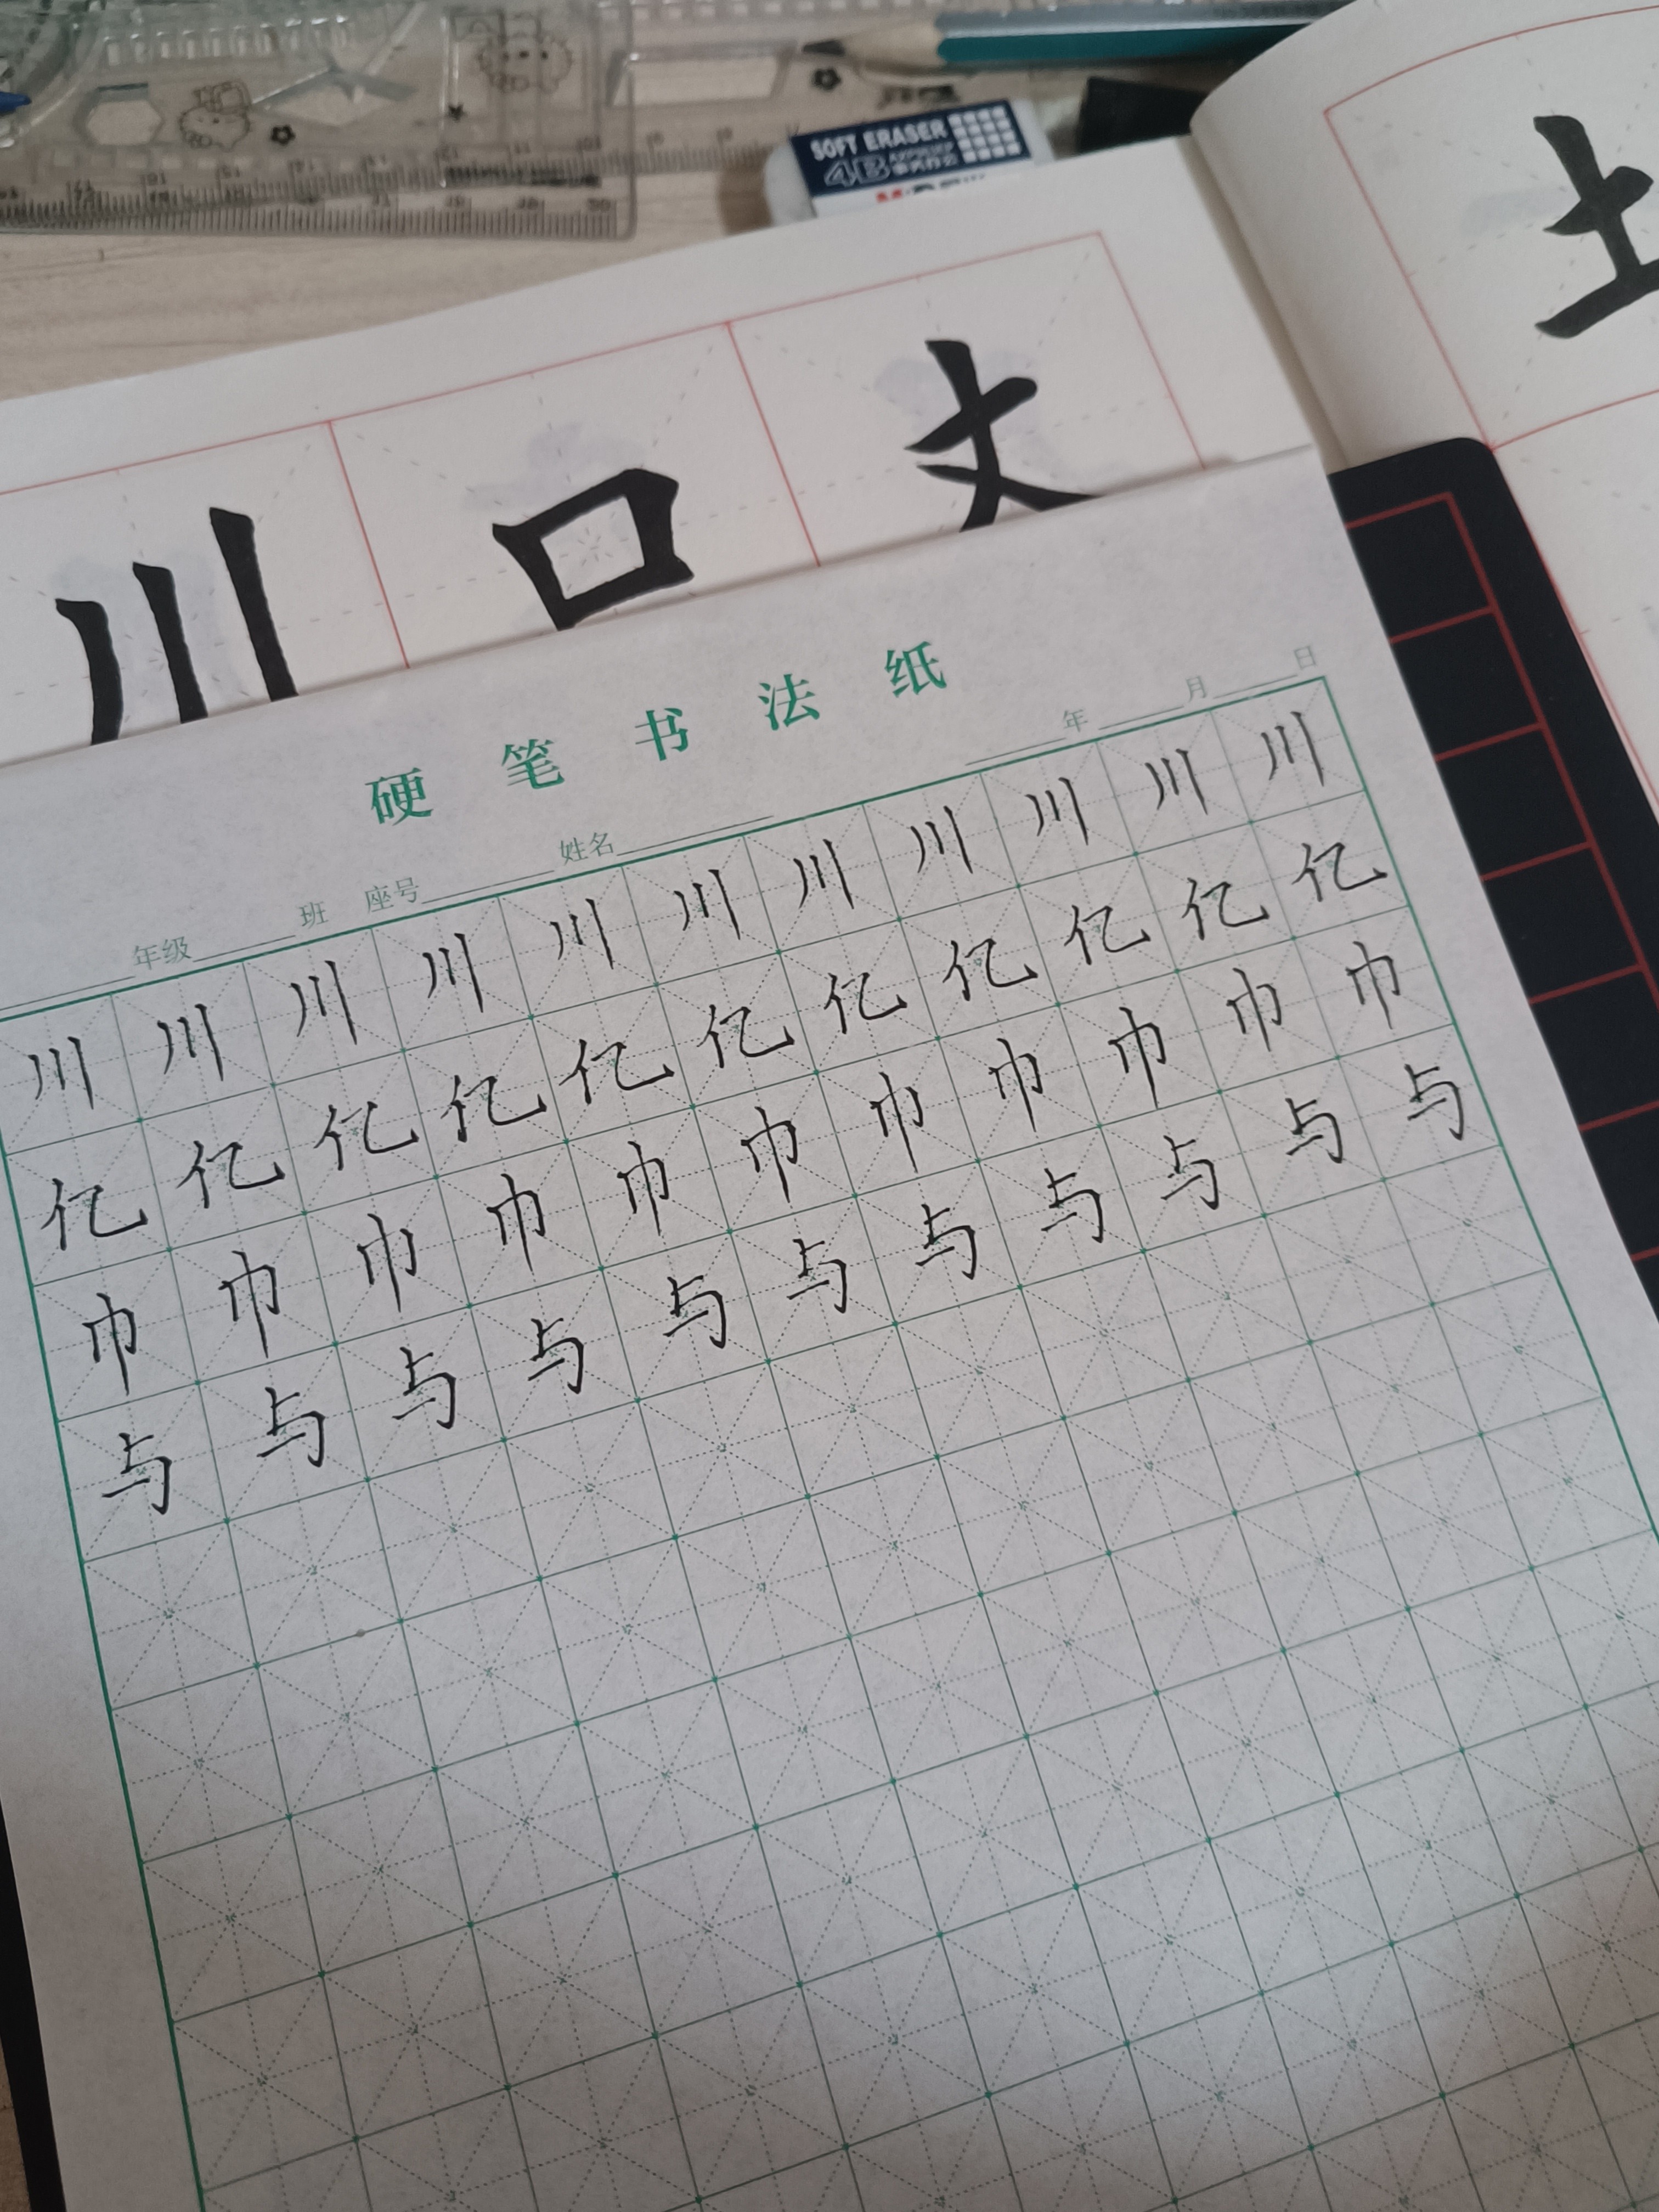 SOFT ERASER
4B
土
川 口 丈
硬笔书法纸
年 月 日
年级 班 座号 姓名
川 川 川 川 川 川 川 川 川 川 川
亿 亿 亿 亿 亿 亿 亿 亿 亿 亿 亿
巾 巾 巾 巾 巾 巾 巾 巾 巾 巾 巾
与 与 与 与 与 与 与 与 与 与 与